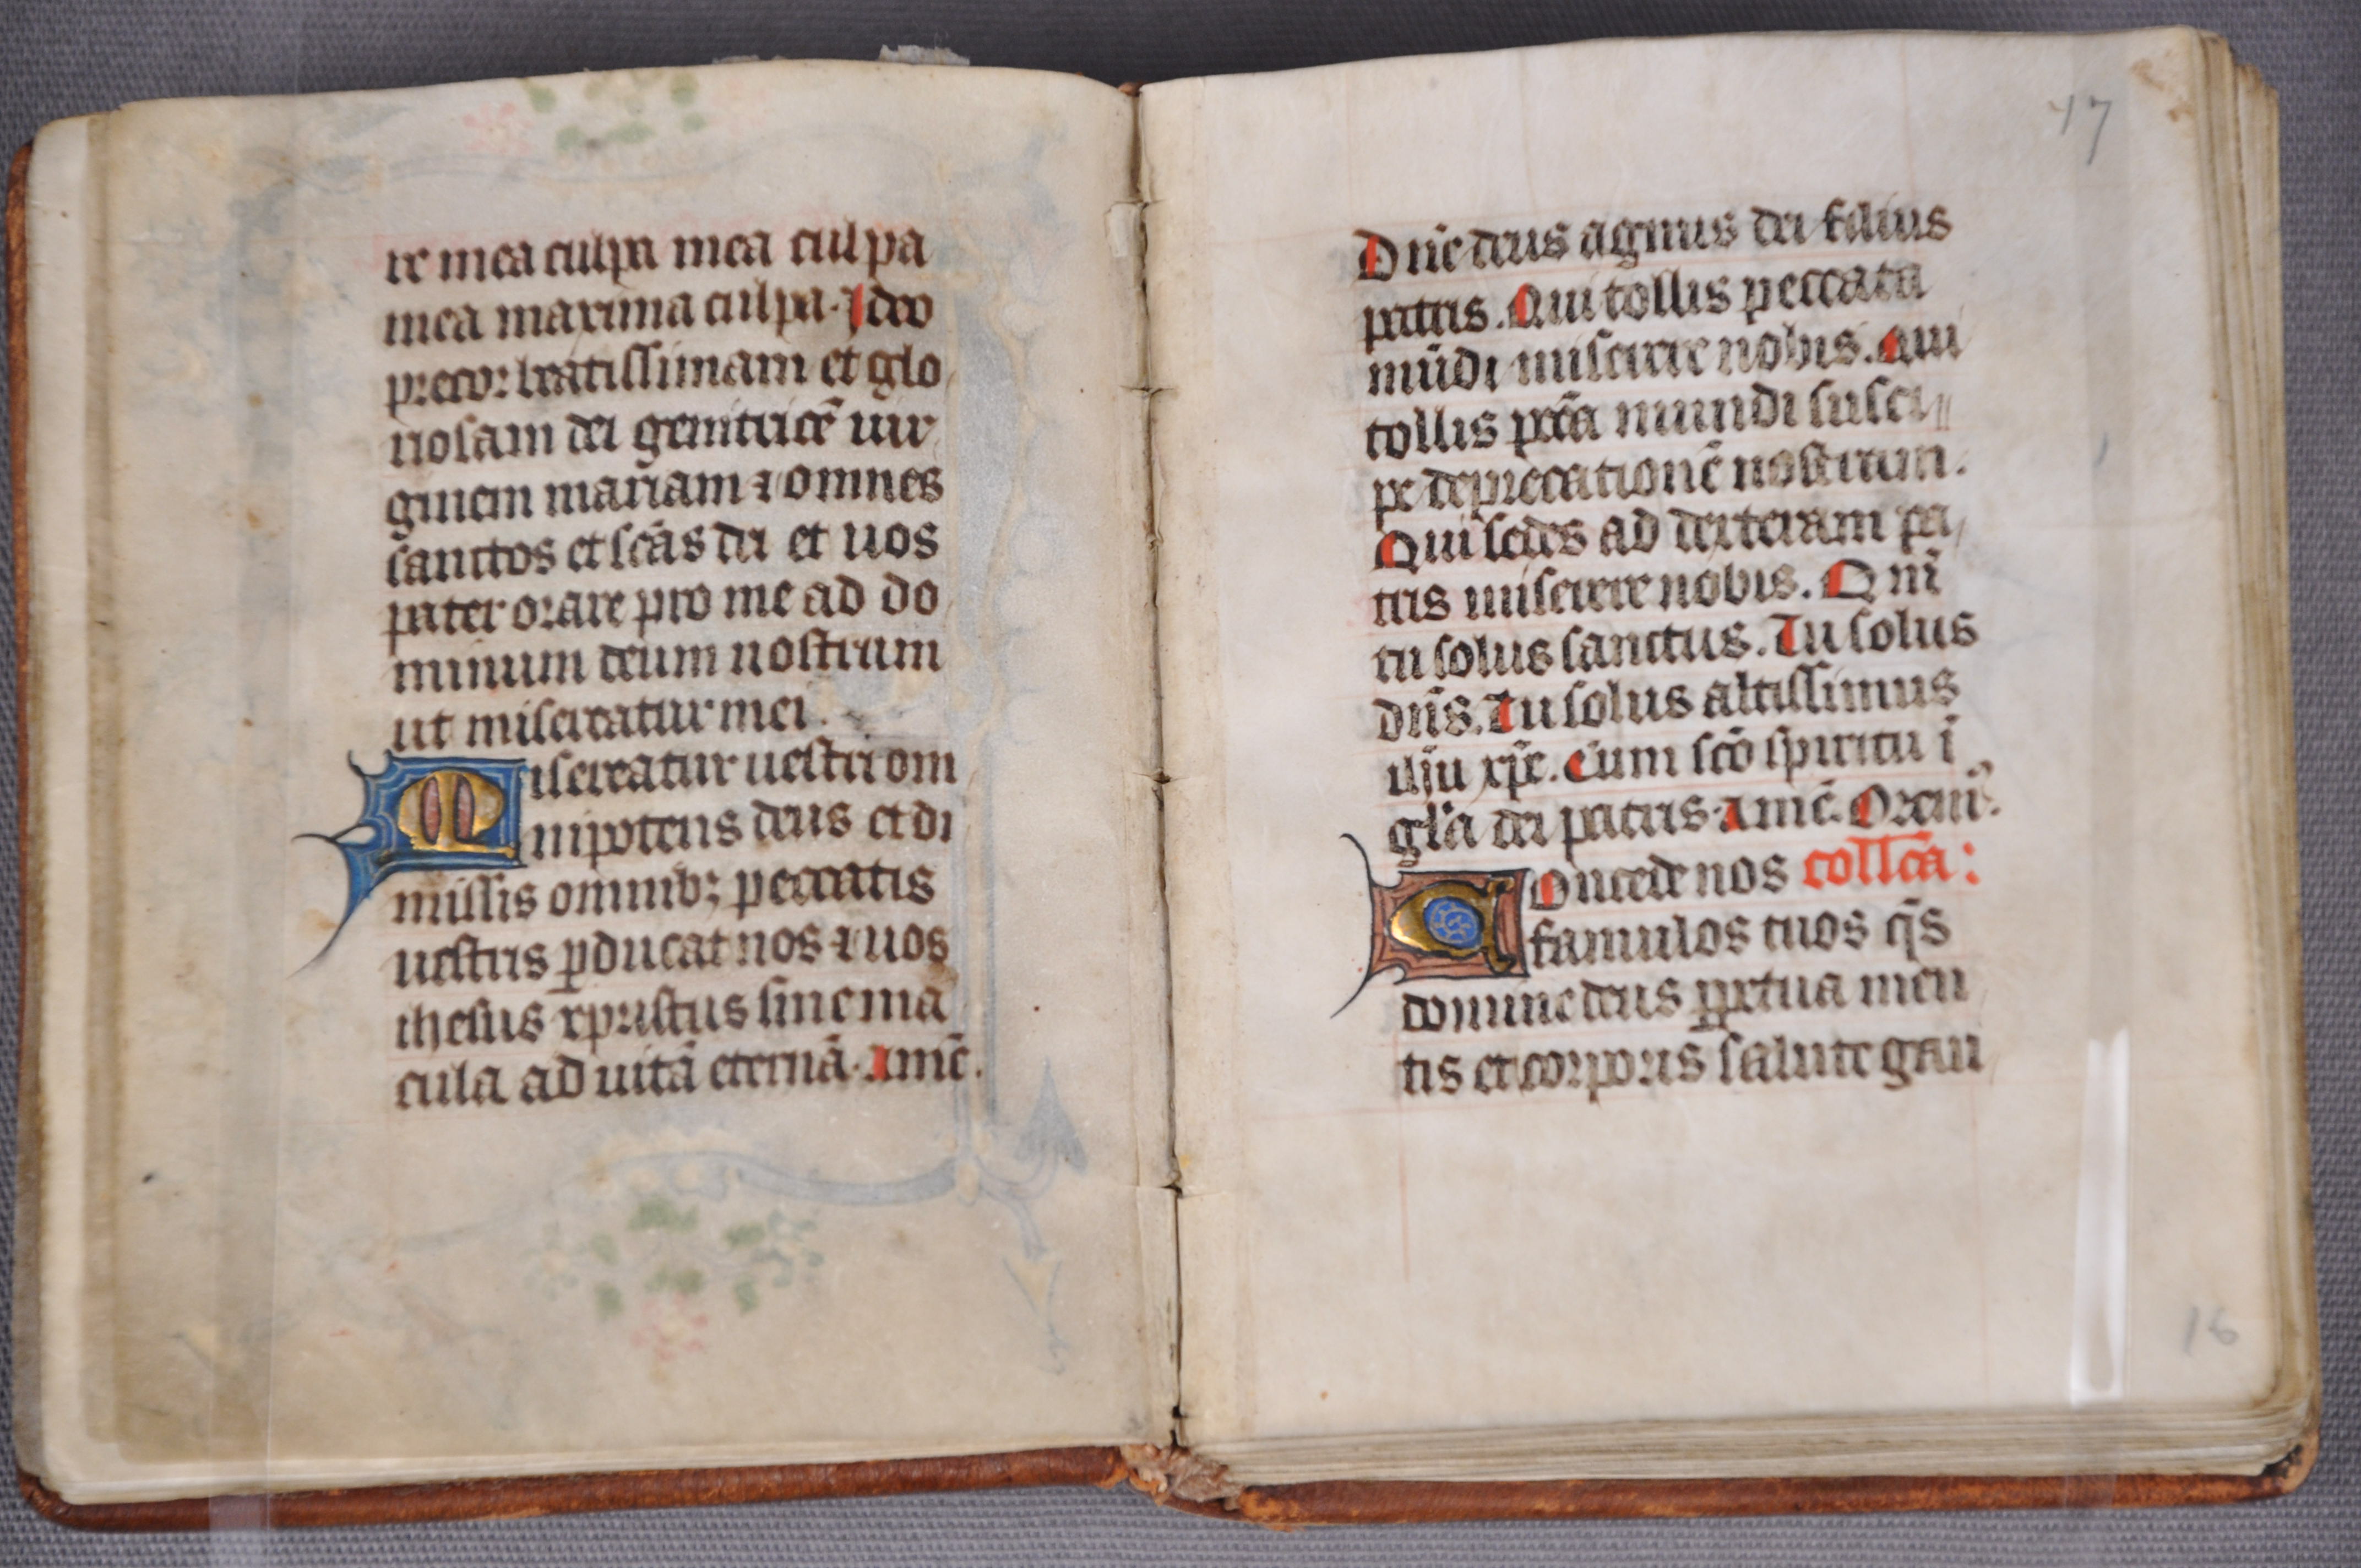 re mea culpa mea culpa
mea maxima culpa. Ideo
precor beatissimam et glo
riosam dei genitricē uir
ginem mariam ⁊ omnes
sanctos et scās dei et uos
pater orare pro me ad do
minum deum nostrum
ut misereatur mei.
Misereatur uestri om
nipotens deus et di
missis omnibꝫ peccatis
uestris ꝑducat nos ⁊ uos
ihesus xpristus sine ma
cula ad uitā eternā. Amē.
17
Dn̄e deus agnus dei filius
patris. Qui tollis peccata
mūdi miserere nobis. Qui
tollis pctā mundi susci
pe deprecationē nostram.
Qui sedes ad dexteram pa
tris miserere nobis. Qm̄
tu solus sanctus. Tu solus
dn̄s. Tu solus altissimus
ihū xp̄e. Cum scō spiritu ī
gl̄a dei patris. Amē. Orem⁹.
Concede nos coll̄ca:
famulos tuos q̄s
domine deus ꝑpetua men
tis et corporis salute gau
16